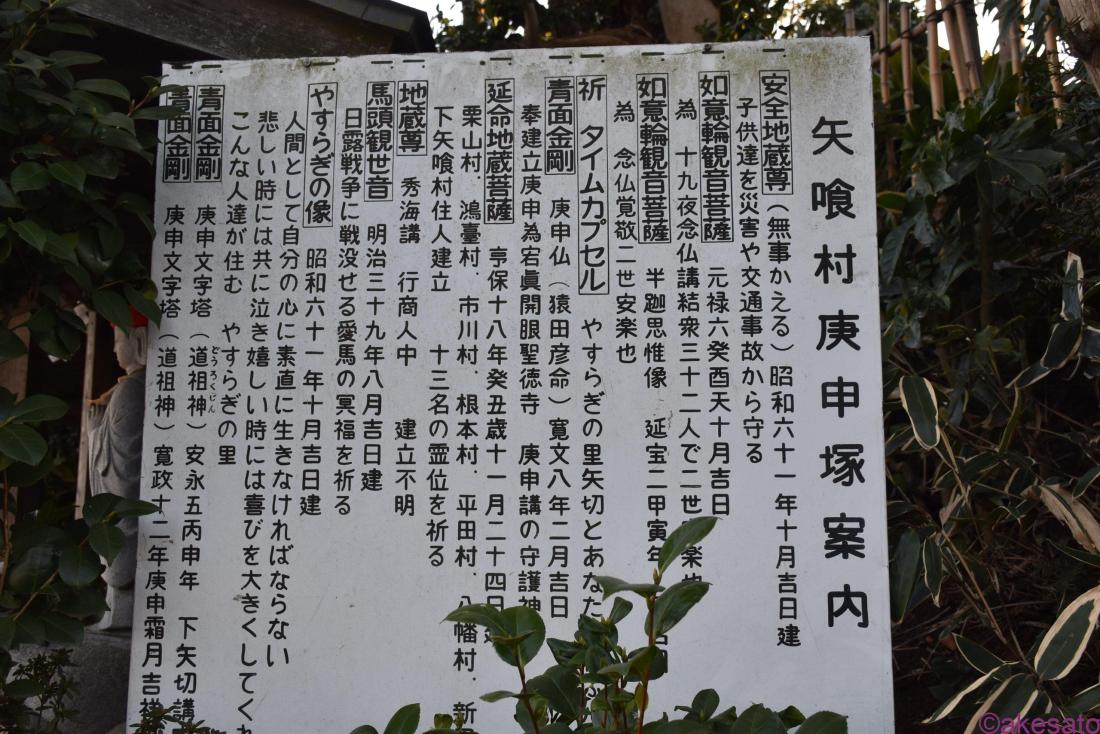 矢喰村庚申塚案内
安全地蔵尊（無事かえる）昭和六十一年十月吉日建
子供達を災害や交通事故から守る
如意輪観音菩薩 元禄六癸酉天十月吉日
為 十九夜念仏講結衆三十二人で二世
如意輪観音菩薩 半跏思惟像 延宝二甲寅年
為 念仏覚敬二世安楽也
祈 タイムカプセル やすらぎの里矢切とあなた
青面金剛 庚申仏（猿田彦命）寛文八年二月吉日
奉建立庚申為宕眞開眼聖徳寺 庚申講の守護神
延命地蔵菩薩 享保十八年癸丑歳十一月二十四日
栗山村、鴻臺村、市川村、根本村、平田村、八幡村、新
下矢喰村住人建立 十三名の霊位を祈る
地蔵尊 秀海講 行商人中 建立不明
馬頭観世音 明治三十九年八月吉日建
日露戦争に戦没せる愛馬の冥福を祈る
やすらぎの像 昭和六十一年十月吉日建
人間として自分の心に素直に生きなければならない
悲しい時には共に泣き嬉しい時には喜びを大きくしてくれ
こんな人達が住む やすらぎの里
青面金剛 庚申文字塔（道祖神）安永五丙申年 下矢切講
どうろくじん
青面金剛 庚申文字塔（道祖神）寛政十二年庚申霜月吉祥
©akesato